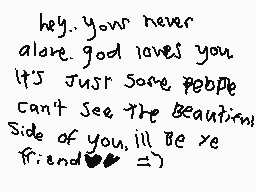 hey.. your never
alone. god loves you
It's Just some people
can't see the Beautiful
side of you, ill Be ye
friend♥♥ =)